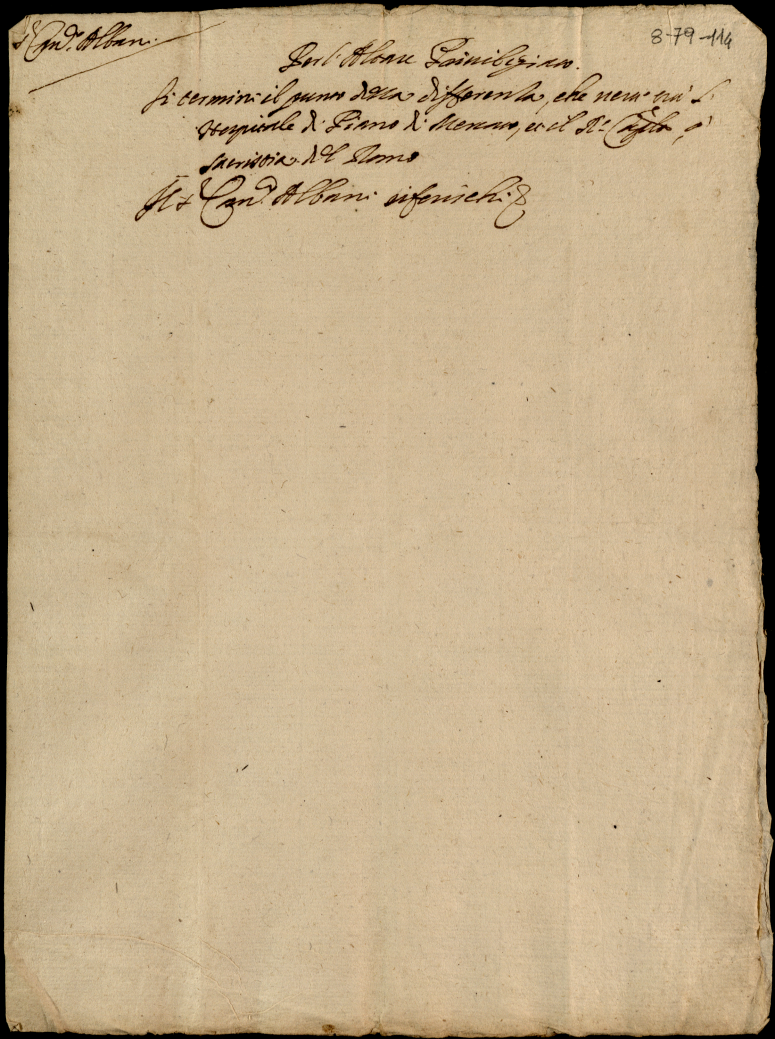 Sr Cand. Albani.
8-79-114
Per l'Altare Privilegiato.
Si termini il punto della differenza, che verte trà l'
Hospitale di Piano di Mercato, et il R. Caplo, ò
sacristia del Domo
Il Sr Cand. Albani riferischi